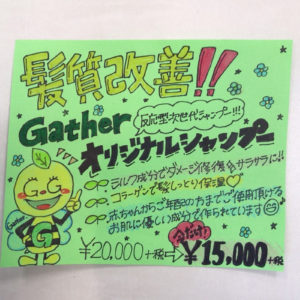 髪質改善!!
Gather
反応型次世代シャンプー!!!
オリジナルシャンプー
シルク成分でダメージ修復&サラサラに!!
コラーゲンで髪しっとり保湿♡
赤ちゃんからご年配の方までご使用頂ける
お肌に優しい成分で作られています
今だけ!
¥20,000+税⇒¥15,000+税
G G
Gather
G